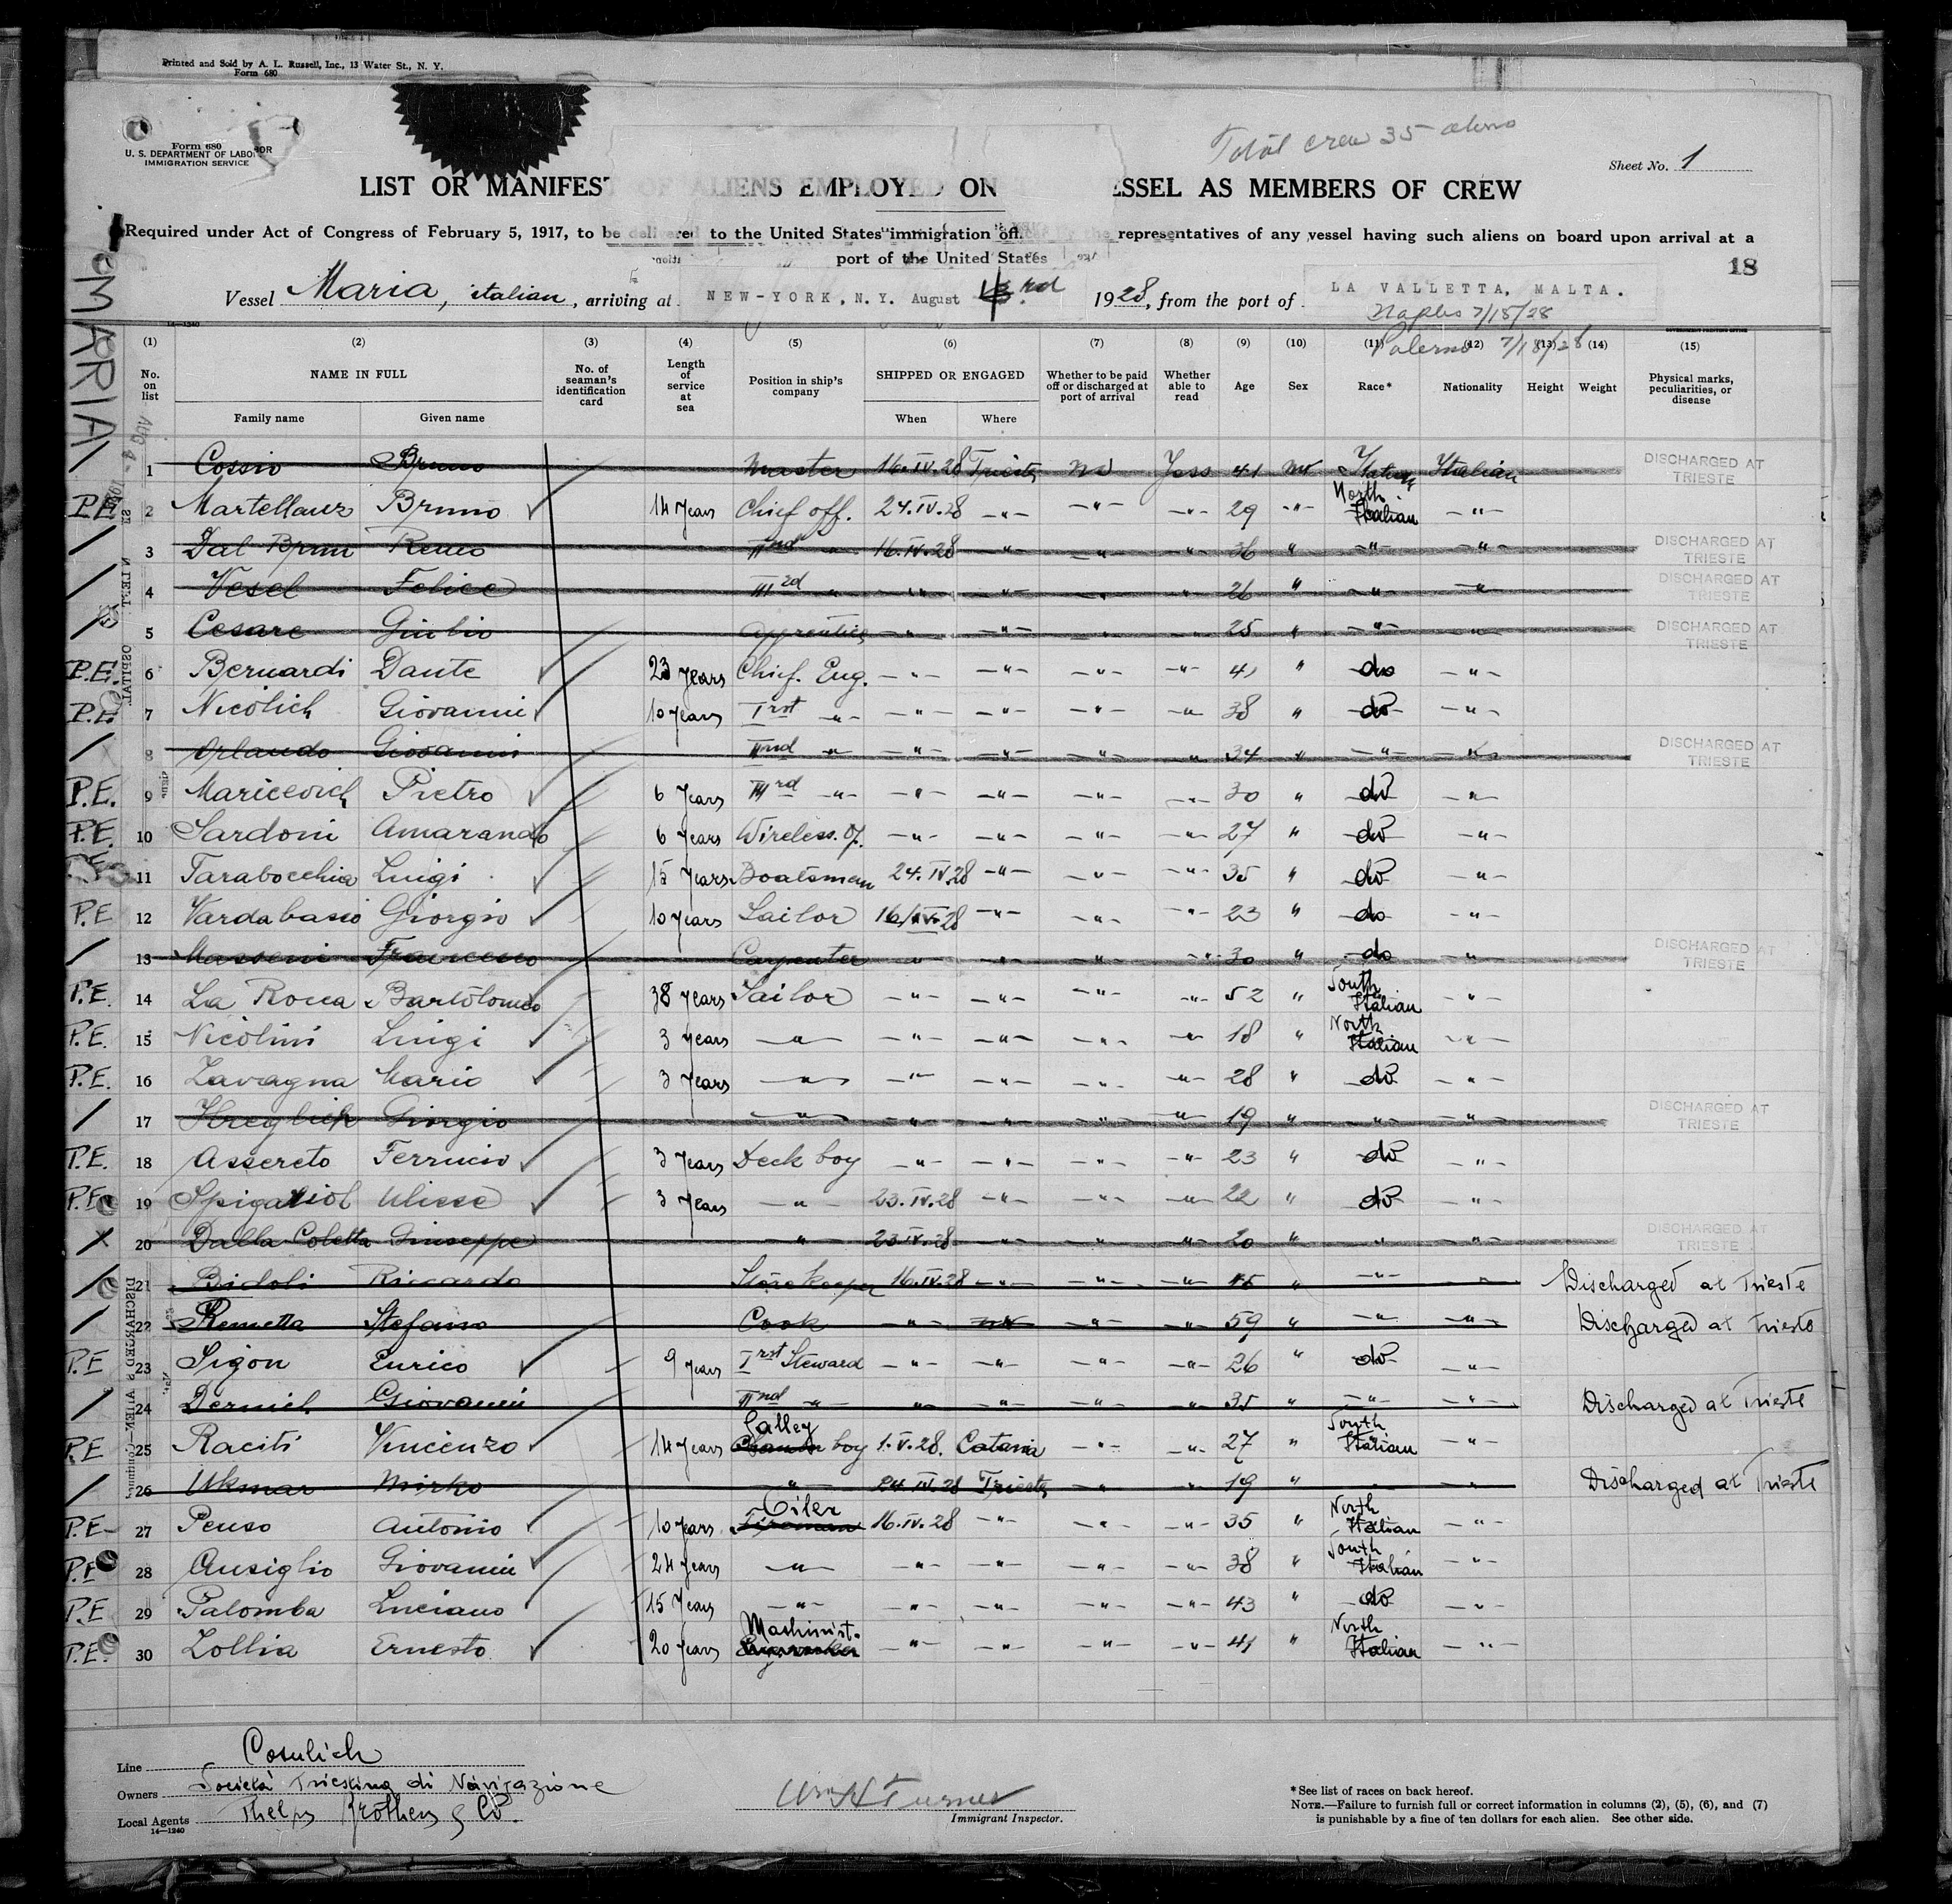 Printed and Sold by A. L. Russell, Inc., 13 Water St., N. Y.
Form 680
Form 680
U. S. DEPARTMENT OF LABOR
IMMIGRATION SERVICE
Total crew 35 aliens
Sheet No. 1
LIST OR MANIFEST OF ALIENS EMPLOYED ON ESSEL AS MEMBERS OF CREW
Required under Act of Congress of February 5, 1917, to be delivered to the United States immigration off. the representatives of any vessel having such aliens on board upon arrival at a
port of the United States
18
Vessel Maria, italian, arriving at NEW-YORK, N.Y. August 3rd 1928, from the port of LA VALLETTA, MALTA.
Naples 7/15/28
Palermo 7/18/28
MARIA
(1) (2) (3) (4) (5) (6) (7) (8) (9) (10) (11) (12) (13) (14) (15)
No. on list
NAME IN FULL
Family name
Given name
No. of seaman's identification card
Length of service at sea
Position in ship's company
SHIPPED OR ENGAGED
When
Where
Whether to be paid off or discharged at port of arrival
Whether able to read
Age
Sex
Race*
Nationality
Height
Weight
Physical marks, peculiarities, or disease
1 Cossio Bruno Master 16.IV.28 Trieste No Jess 41 m Italian Italian DISCHARGED AT TRIESTE
P.E. 2 Martellanz Bruno 14 Years Chief off. 24.IV.28 -"- -"- -"- 29 -"- North Italian -"-
3 Dal Brun Remo IInd " 16.IV.28 -"- -"- -"- 36 " -"- -"- DISCHARGED AT TRIESTE
4 Vesel Felice IIIrd " -"- -"- -"- -"- 26 " -"- -"- DISCHARGED AT TRIESTE
5 Cesare Giulio Apprentice -"- -"- -"- -"- 25 " -"- -"- DISCHARGED AT TRIESTE
P.E. 6 Bernardi Dante 23 Years Chief. Eng. -"- -"- -"- -"- 41 " do -"-
P.E. 7 Nicolich Giovanni 10 Years Irst -"- -"- -"- -"- -"- 38 " do -"-
8 Orlando Giovanni IInd -"- -"- -"- -"- -"- 34 " -"- -"- DISCHARGED AT TRIESTE
P.E. 9 Maricevich Pietro 6 Years IIIrd -"- -"- -"- -"- -"- 30 " do -"-
P.E. 10 Sardoni Amarando 6 Years Wireless. Op. -"- -"- -"- -"- 27 " do -"-
P.E. 11 Tarabocchia Luigi 15 Years Boatsman 24.IV.28 -"- -"- -"- 35 " do -"-
P.E 12 Vardabasso Giorgio 10 Years Sailor 16/IV.28 -"- -"- -"- 23 " do -"-
13 Francesco Carpenter -"- -"- -"- -"- 30 " do -"- DISCHARGED AT TRIESTE
P.E. 14 La Rocca Bartolomeo 38 Years Sailor -"- -"- -"- -"- 52 " South Italian -"-
P.E. 15 Nicolini Luigi 3 Years -"- -"- -"- -"- -"- 18 " North Italian -"-
P.E. 16 Lavagna Mario 3 Years -"- -"- -"- -"- -"- 28 " do -"-
17 Giorgio -"- -"- -"- -"- -"- 19 " " -"- DISCHARGED AT TRIESTE
P.E. 18 Assereto Ferrucio 3 Years Deck boy -"- -"- -"- -"- 23 " do -"-
P.E. 19 Ulisse 3 Years -"- 23.IV.28 -"- -"- -"- 22 " do -"-
20 Dalla Coletta Giuseppe -"- 23.IV.28 -"- -"- -"- 20 " " -"- DISCHARGED AT TRIESTE
21 Bidoli Riccardo Storekeeper 16.IV.28 -"- -"- -"- 45 " -"- " Discharged at Trieste
22 Remetta Stefano Cook -"- -"- -"- -"- 59 " -"- -"- Discharged at Trieste
P.E 23 Sigon Enrico 9 Years Irst Steward -"- -"- -"- -"- 26 " do -"-
24 Giovanni IInd -"- -"- -"- -"- -"- 35 " -"- -"- Discharged at Trieste
P.E 25 Raciti Vincenzo 14 Years Galley boy 1.V.28. Catania -"- -"- 27 " South Italian -"-
26 Ukmar Mirko -"- 24.IV.28 Trieste " " 19 " " " Discharged at Trieste
P.E 27 Penso Antonio 10 Years Oiler Fireman 16.IV.28 -"- -"- -"- 35 " North Italian -"-
P.E 28 Ausiglio Giovanni 24 Years -"- -"- -"- -"- -"- 38 " South Italian -"-
P.E 29 Palomba Luciano 15 Years -"- -"- -"- -"- -"- 43 " do -"-
P.E. 30 Zollia Ernesto 20 Years Mashinist. -"- -"- -"- -"- 41 " North Italian -"-
Line Cosulich
Owners Società Triestina di Navigazione
Local Agents Phelps Brothers & Co.
14-1240
Wm H Turner
Immigrant Inspector.
* See list of races on back hereof.
NOTE.—Failure to furnish full or correct information in columns (2), (5), (6), and (7)
is punishable by a fine of ten dollars for each alien. See other side.